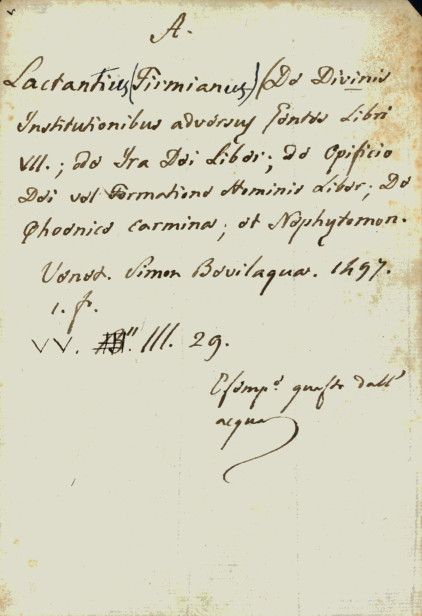 A.
Lactantius (Firmianus) (De Divinis
Institutionibus adversus Gentes Libri
VII.; de Ira Dei Liber; de Opificio
Dei vel Formatione Hominis Liber; De
Phoenice carmina; et Nephytomon.
Venet. Simon Bevilaqua. 1497.
1. f.
VV. III. 29.
Esemp.º guasto dall'
acqua